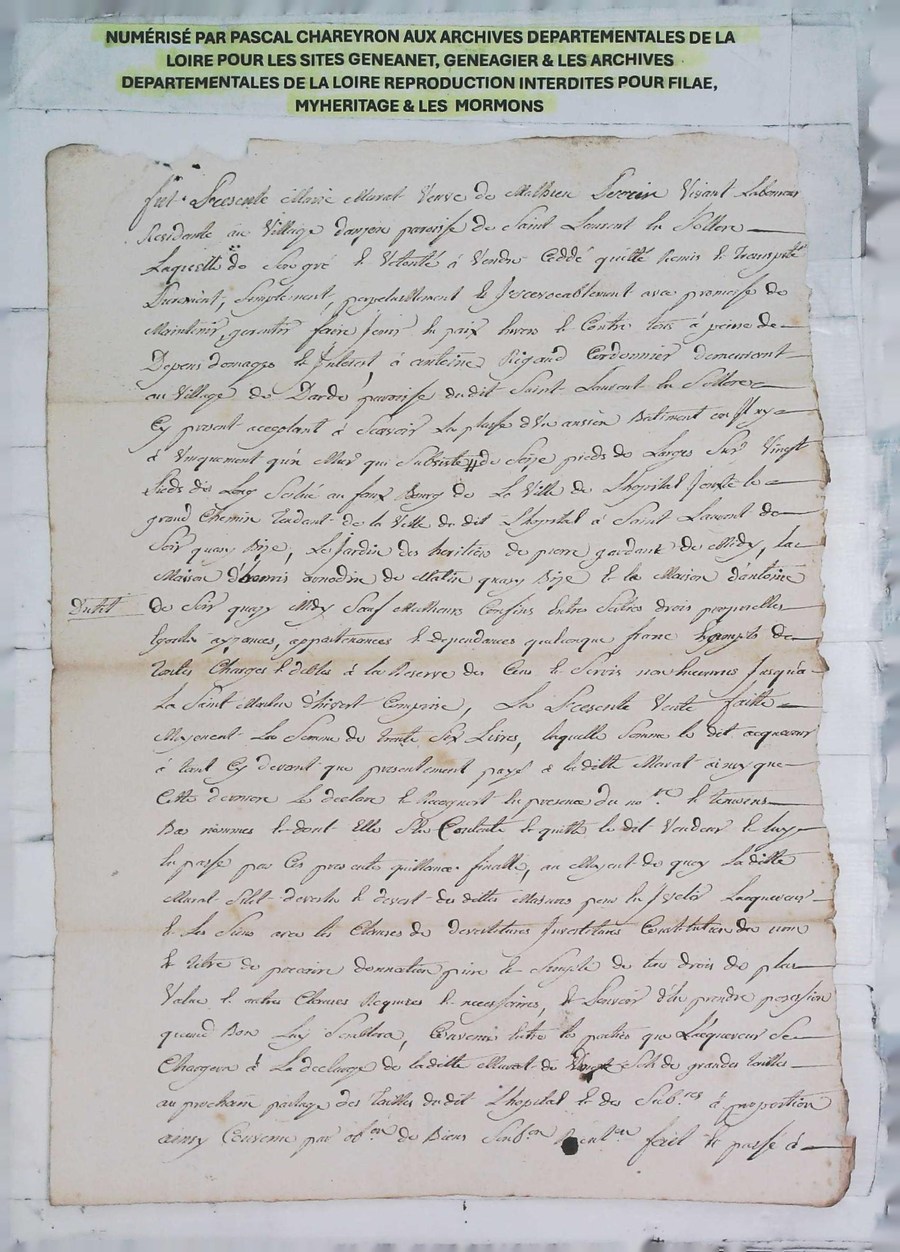 NUMÉRISÉ PAR PASCAL CHAREYRON AUX ARCHIVES DEPARTEMENTALES DE LA
LOIRE POUR LES SITES GENEANET, GENEAGIER & LES ARCHIVES
DEPARTEMENTALES DE LA LOIRE REPRODUCTION INTERDITES POUR FILAE,
MYHERITAGE & LES MORMONS
fut Presente Marie Murat Veuve de Mathieu Vivant Laboureur
Residante au Village paroisse de Saint Laurent la Sollere
Laquelle de Son gré et Volonté à Vendu Ceddé quitté Remis et Transporté
Purement, Simplement, perpetuellement et Irrevocablement avec promesse de
Maintenir, garantir faire Jouir en paix Envers et Contre tous à peine de
Depens domages et Interest à antoine Rigaud Cordonnier demeurant
au Village de Dardé paroisse dudit Saint Laurent la Sollere
Cy present acceptant à Scavoir La plasse d'Un ancien Batiment ny
à Uniquement qu'un Mur qui Subsiste de Seize pieds de Larges Sur Vingt
Pieds de Long Scitué au faux Bourg de La Ville de Lhopital Jouxte le
grand Chemin Tendant de la Ville du dit Lhopital à Saint Laurent de
Soir quasy Bize, Le Jardin des heritiers de pierre de Midy, la
Maison de Matin quasy Bize et la Maison d'antoine
de Soir quasy Midy Sauf Meilleurs Confins Entrées Sorties drois proprietés
aysances, appartenances et dependances quelconque franc Exempts de
Toutes Charges et debtes à la Reserve des Cens et Servis Jusqu'a
La Saint Martin d'hivert Comprise, La Presente Vente faitte
Moyenent La Somme de trente Six Livres, laquelle Somme le dit acquereur
à tant Cy devant que presentement payé à laditte Murat ainsy que
Cette derniere Le declare et Recognoit En presence du no.re et temoins
Bas nommés et dont Elle S'En Contente et quitte le dit Vendeur et luy
En passe par Ces presentes quittance finalle, au Moyent de quoy Laditte
Murat S'Est devetu et devest des dittes Masures pour En Lacquereur
et Les Siens avec les Clauses de devestitures Investitures Constitution de nom
et titre de precaire donnation pure et Simple de tous drois de plus
Value et autres Clauses Requises et necessaires, et pouvoir d'En prendre posession
quand Bon Luy Semblera, Convenu Entre les parties que Lacquereur Se
Chargera à La decharge de laditte Murat de Sols de grandes tailles
au prochain partage des Tailles du dit Lhopital et des à proportion
ainsy Convenu par ob.on de Biens fait et passé à